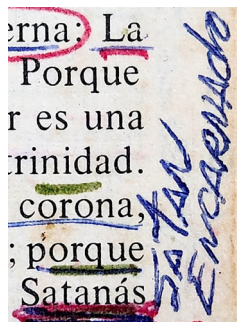 erna: La
Porque
r es una
trinidad.
corona,
; porque
Satanás
Satan
Encadenado